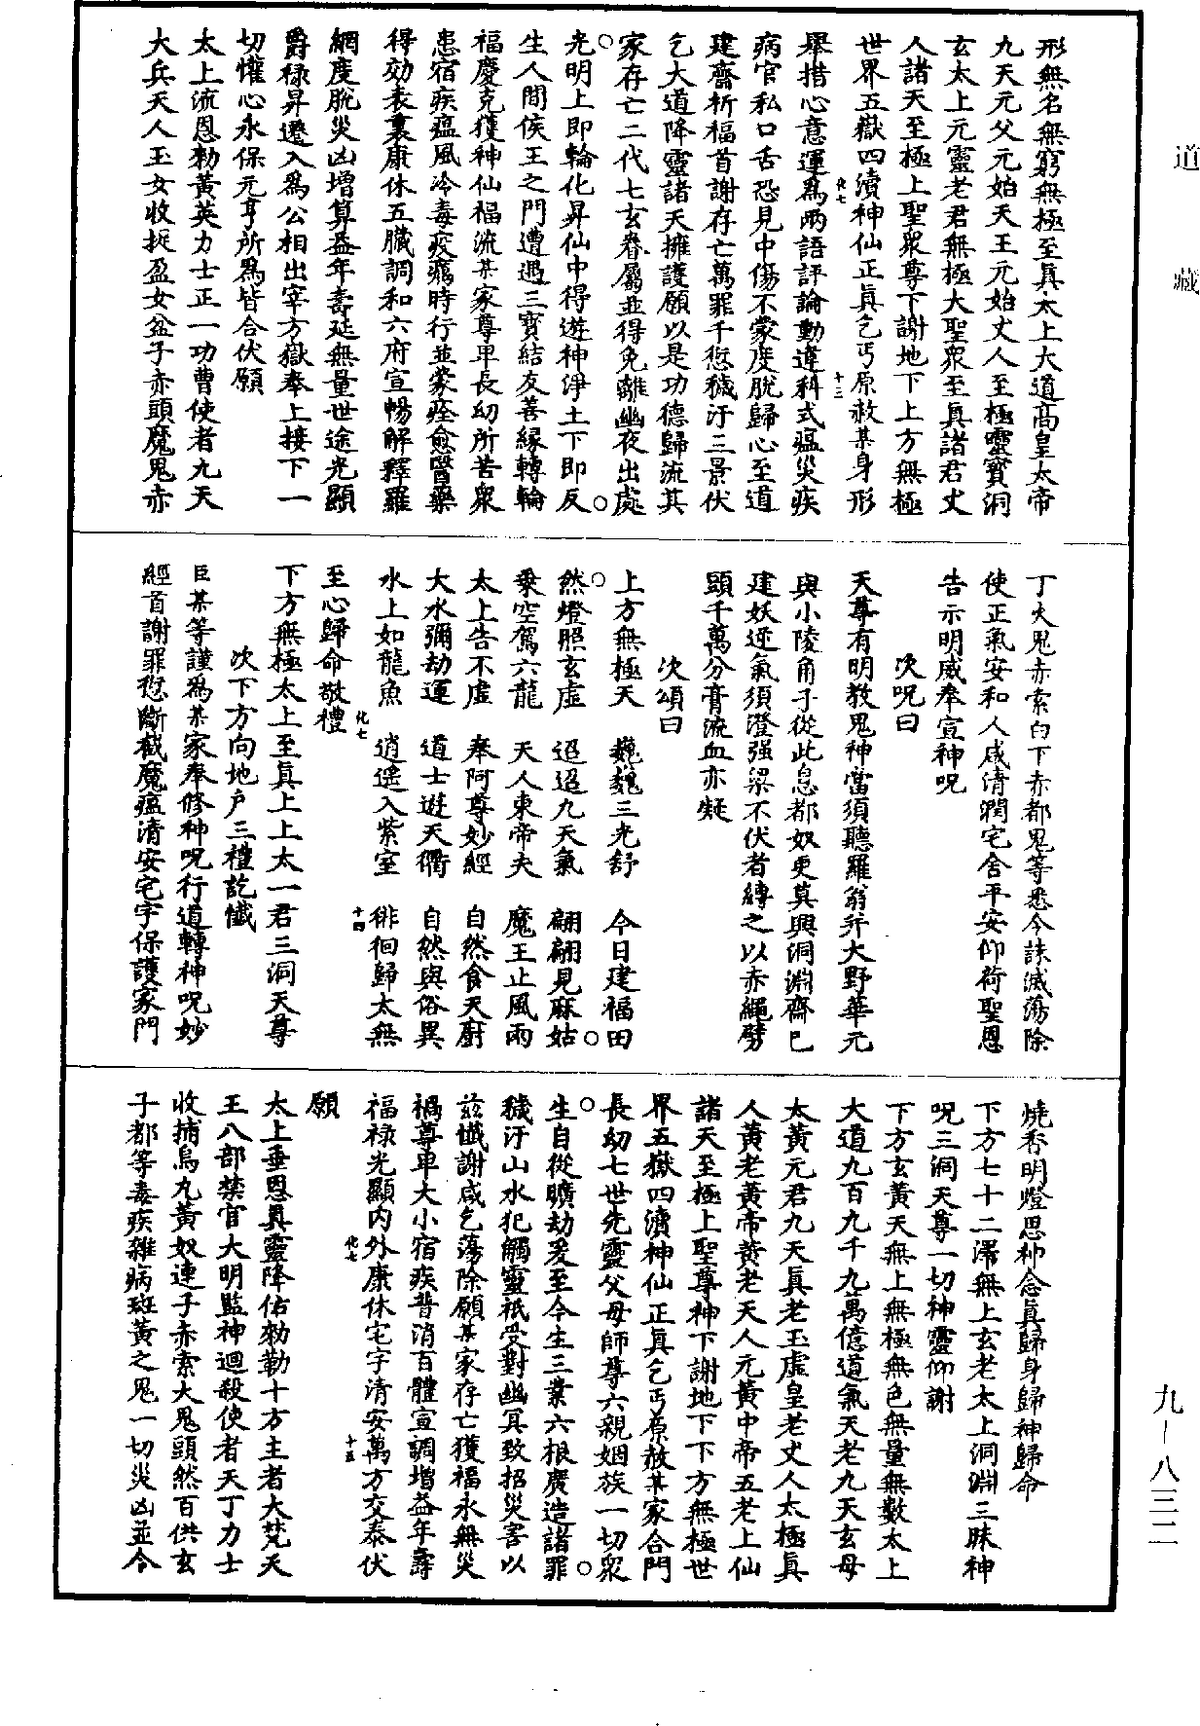 道藏
形無名無窮無極至眞太上大道高皇太帝
九天元父元始天王元始丈人至極靈寶洞
玄太上元靈老君無極大聖衆至眞諸君丈
人諸天至極上聖衆尊下謝地下上方無極
世界五嶽四瀆神仙正眞乞丐原赦某身形
舉措心意運爲兩語評論動違科式瘟災疾
病官私口舌恐見中傷不蒙度脫歸心至道
建齋祈福首謝存亡萬罪千愆穢汙三景伏
乞大道降靈諸天擁護願以是功德歸流其
家存亡二代七玄眷屬並得免離幽夜出處
光明上即輪化昇仙中得遊神淨土下即反
生人間侯王之門遭遇三寶結友善緣轉輪
福慶克獲神仙福流某家尊卑長幼所苦衆
患宿疾瘟風冷毒疫癘時行並蒙痊愈醫藥
得効表裏康休五臟調和六府宣暢解釋羅
網度脫災凶增算益年壽延無量世途光顯
爵祿昇遷入爲公相出宰方嶽奉上接下一
切懽心永保元亨所爲皆合伏願
太上流恩勑黃英力士正一功曹使者九天
大兵天人玉女收捉盈女盆子赤頭魔鬼赤
化七
十三
丁火鬼赤索白下赤都鬼等悉令誅滅蕩除
使正氣安和人咸清潤宅舍平安仰荷聖恩
告示明威奉宣神呪
次呪曰
天尊有明教鬼神當須聽羅翁并大野華元
與小陵角子從此息都奴更莫興洞淵齋已
建妖逆氣須澄强梁不伏者縛之以赤繩劈
頭千萬分膏流血亦凝
次頌曰
上方無極天 巍巍三光舒 今日建福田
然燈照玄虛 迢迢九天氣 翩翩見麻姑
乘空駕六龍 天人東帝夫 魔王止風雨
太上告不虛 奉阿尊妙經 自然食天廚
大水彌劫運 道士遊天衢 自然與俗異
水上如龍魚 逍遙入紫室 徘徊歸太無
至心歸命敬禮
下方無極太上至眞上上太一君三洞天尊
次下方向地户三禮訖懺
臣某等謹爲某家奉修神呪行道轉神呪妙
經首謝罪愆斷截魔瘟清安宅宇保護家門
化七
十四
燒香明燈思神念眞歸身歸神歸命
下方七十二澤無上玄老太上洞淵三昧神
呪三洞天尊一切神靈仰謝
下方玄黃天無上無極無色無量無數太上
大道九百九千九萬億道氣天老九天玄母
太黃元君九天眞老玉虛皇老丈人太極眞
人黃老黃帝黃老天人元黃中帝五老上仙
諸天至極上聖尊神下謝地下下方無極世
界五嶽四瀆神仙正眞乞丐原赦某家合門
長幼七世先靈父母師尊六親姻族一切衆
生自從曠劫爰至今生三業六根廣造諸罪
穢汙山水犯觸靈祇受對幽冥致招災害以
兹懺謝咸乞蕩除願某家存亡獲福永無災
禍尊卑大小宿疾普消百體宣調增益年壽
福祿光顯內外康休宅宇清安萬方交泰伏
願
太上垂恩眞靈降佑勑勒十方主者大梵天
王八部禁官大明監神迴殺使者天丁力士
收捕烏丸黃奴連子赤索大鬼頭然百供玄
子都等毒疾雜病斑黃之鬼一切災凶並令
化七
十五
九—八三二